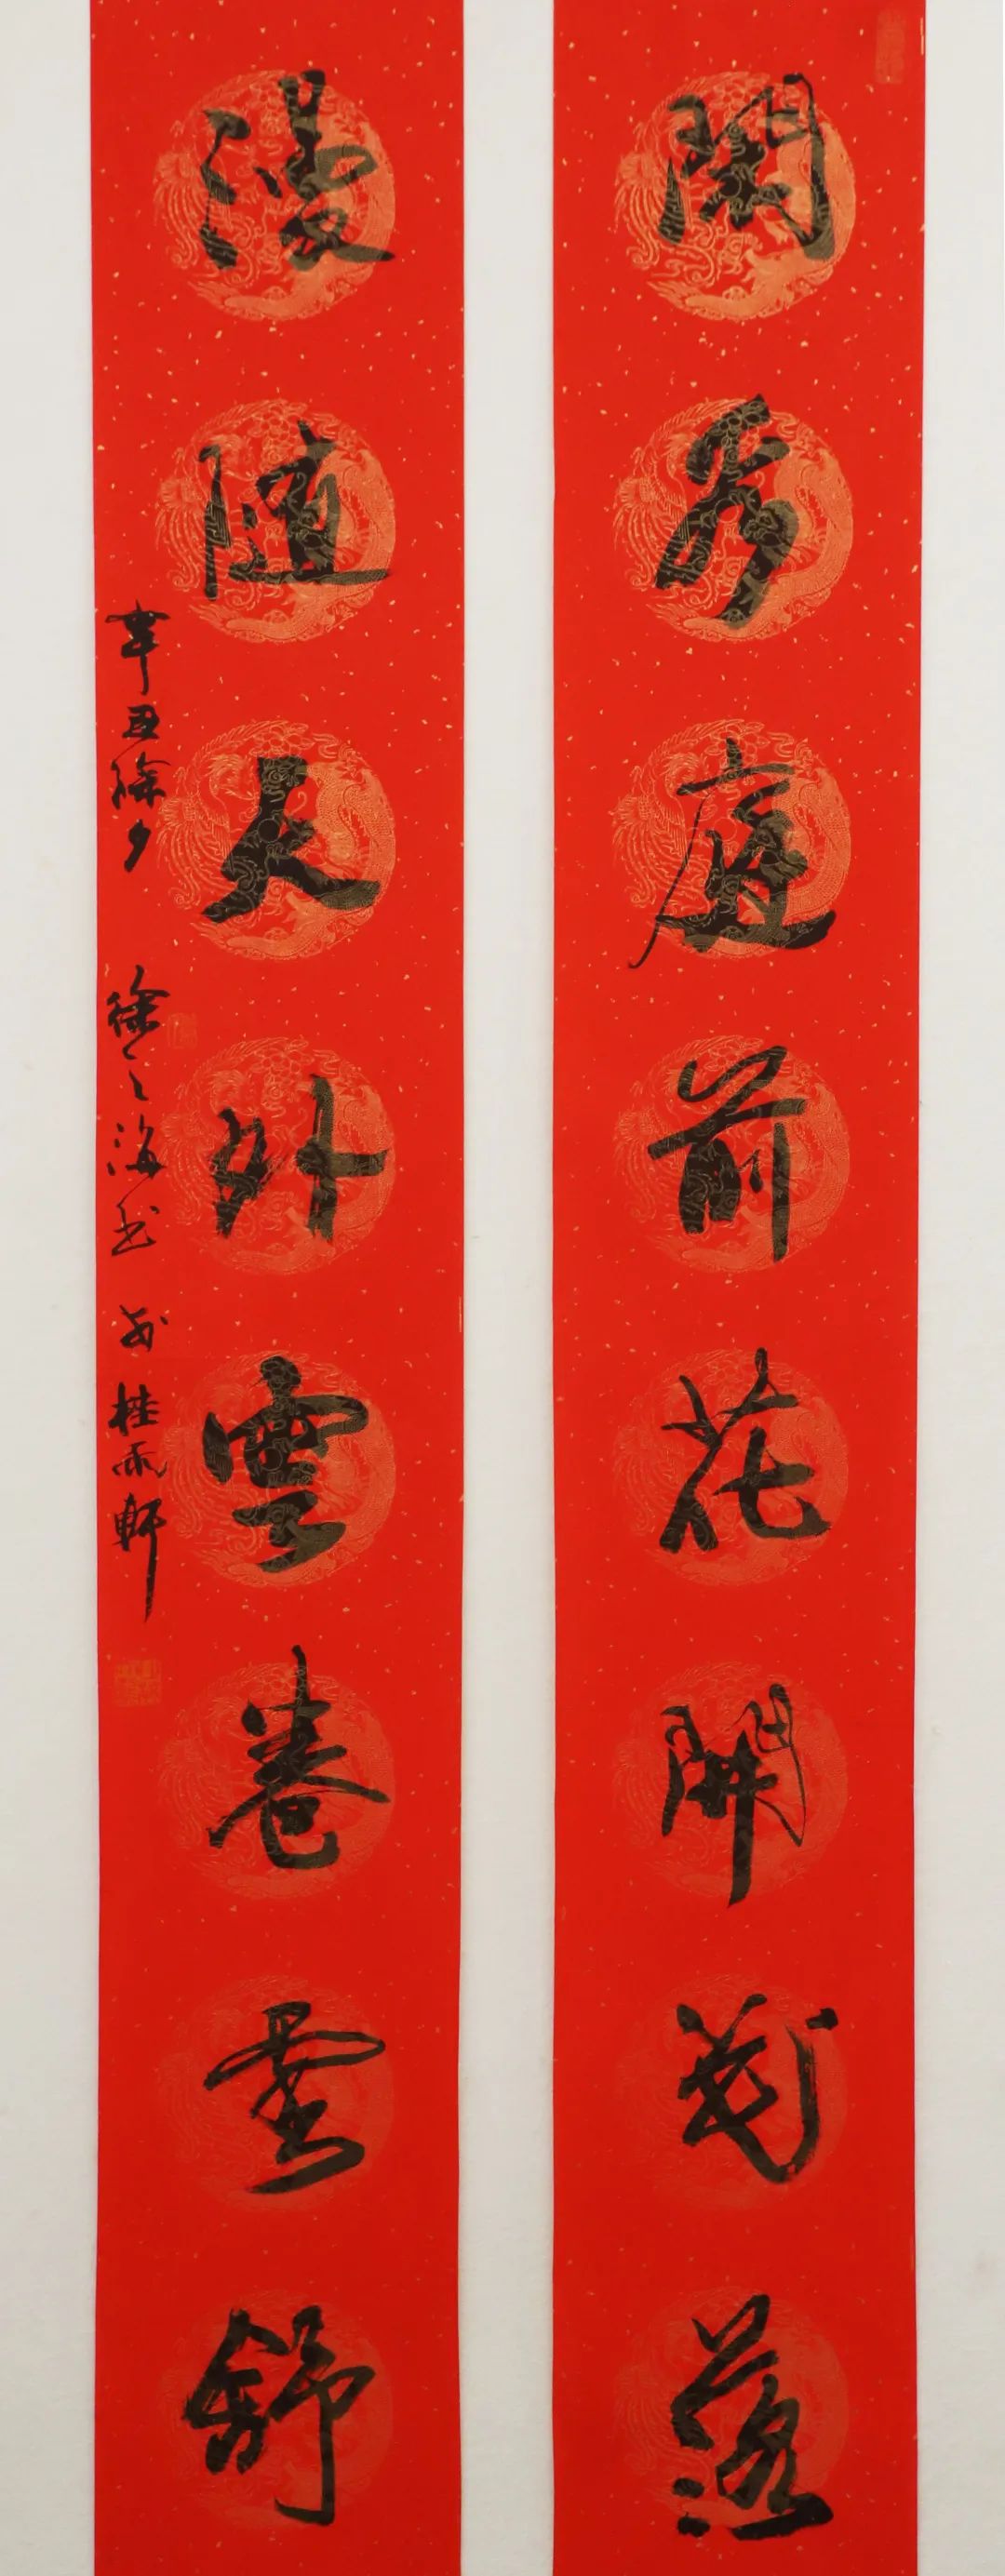 閑看庭前花開花落
漫隨天外雲卷雲舒
辛丑除夕 徐之海書於桂雨軒